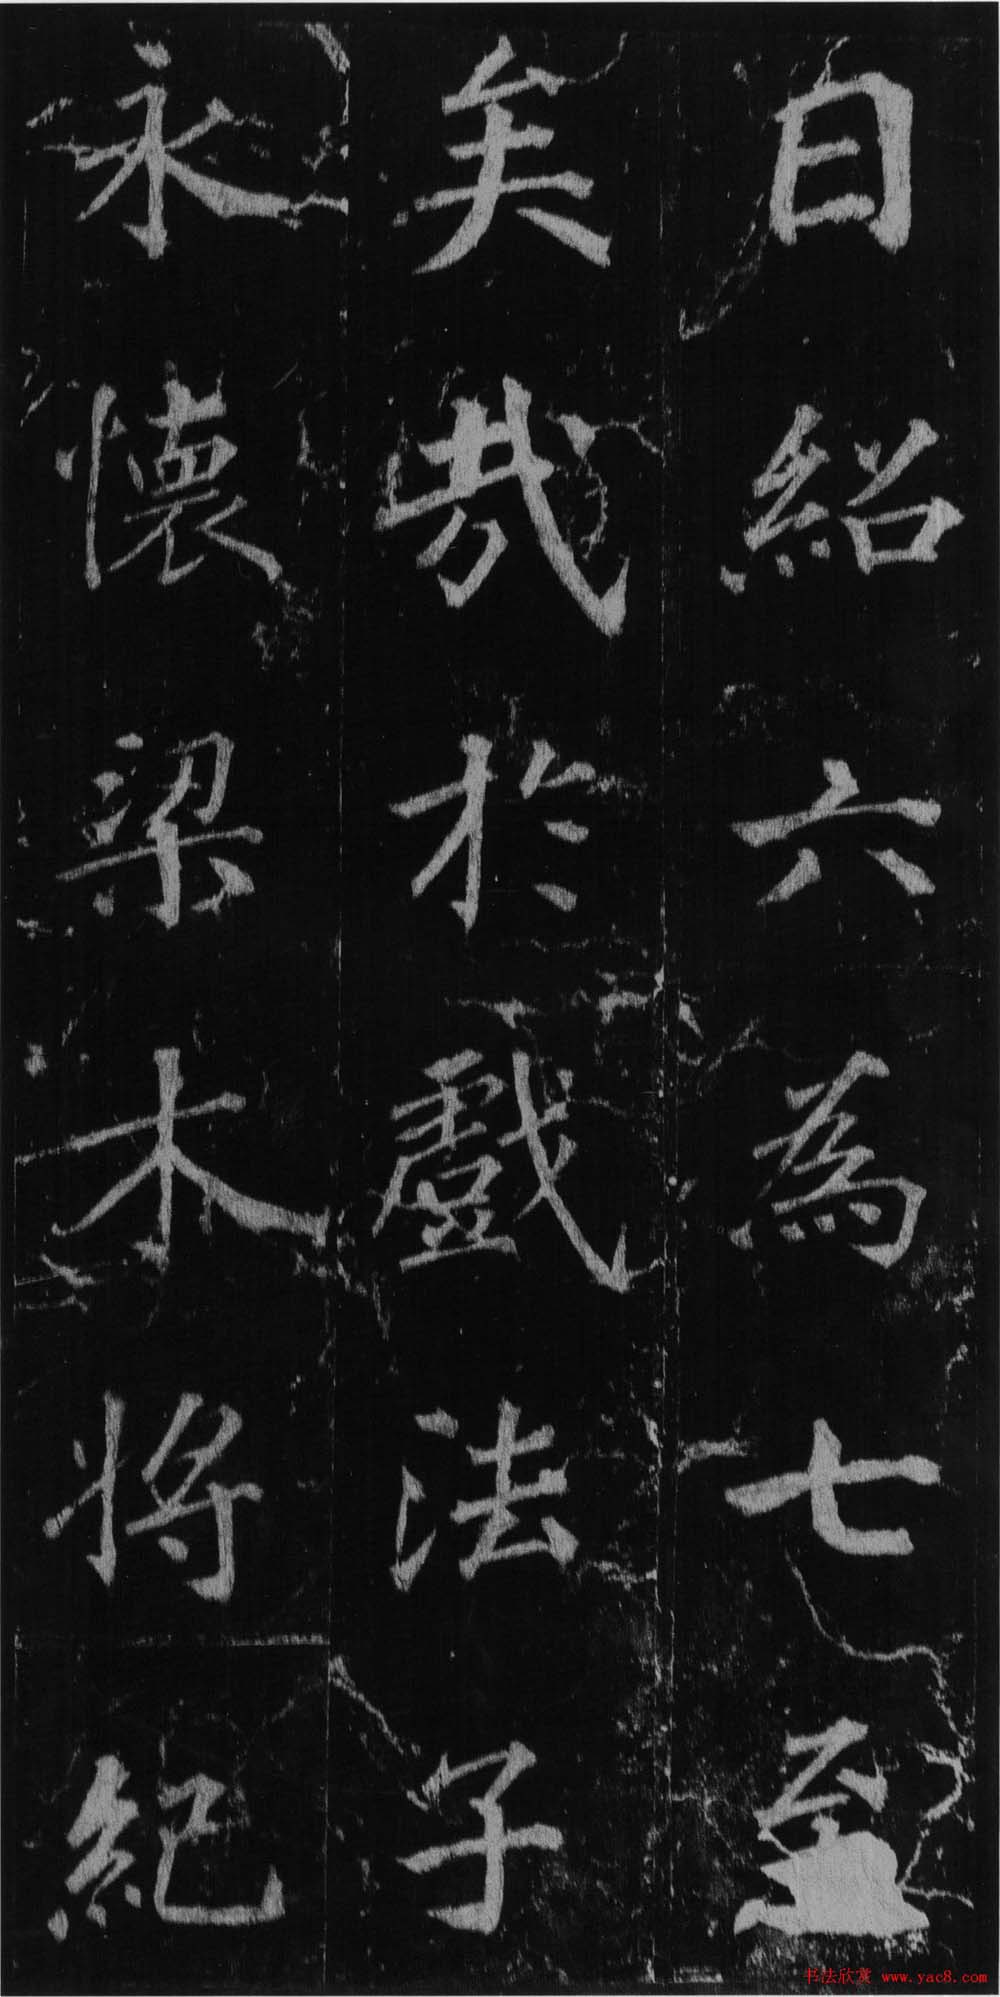 日紹六為七至
矣哉於戲法子
永懷梁木將紀
书法欣赏 www.yac8.com